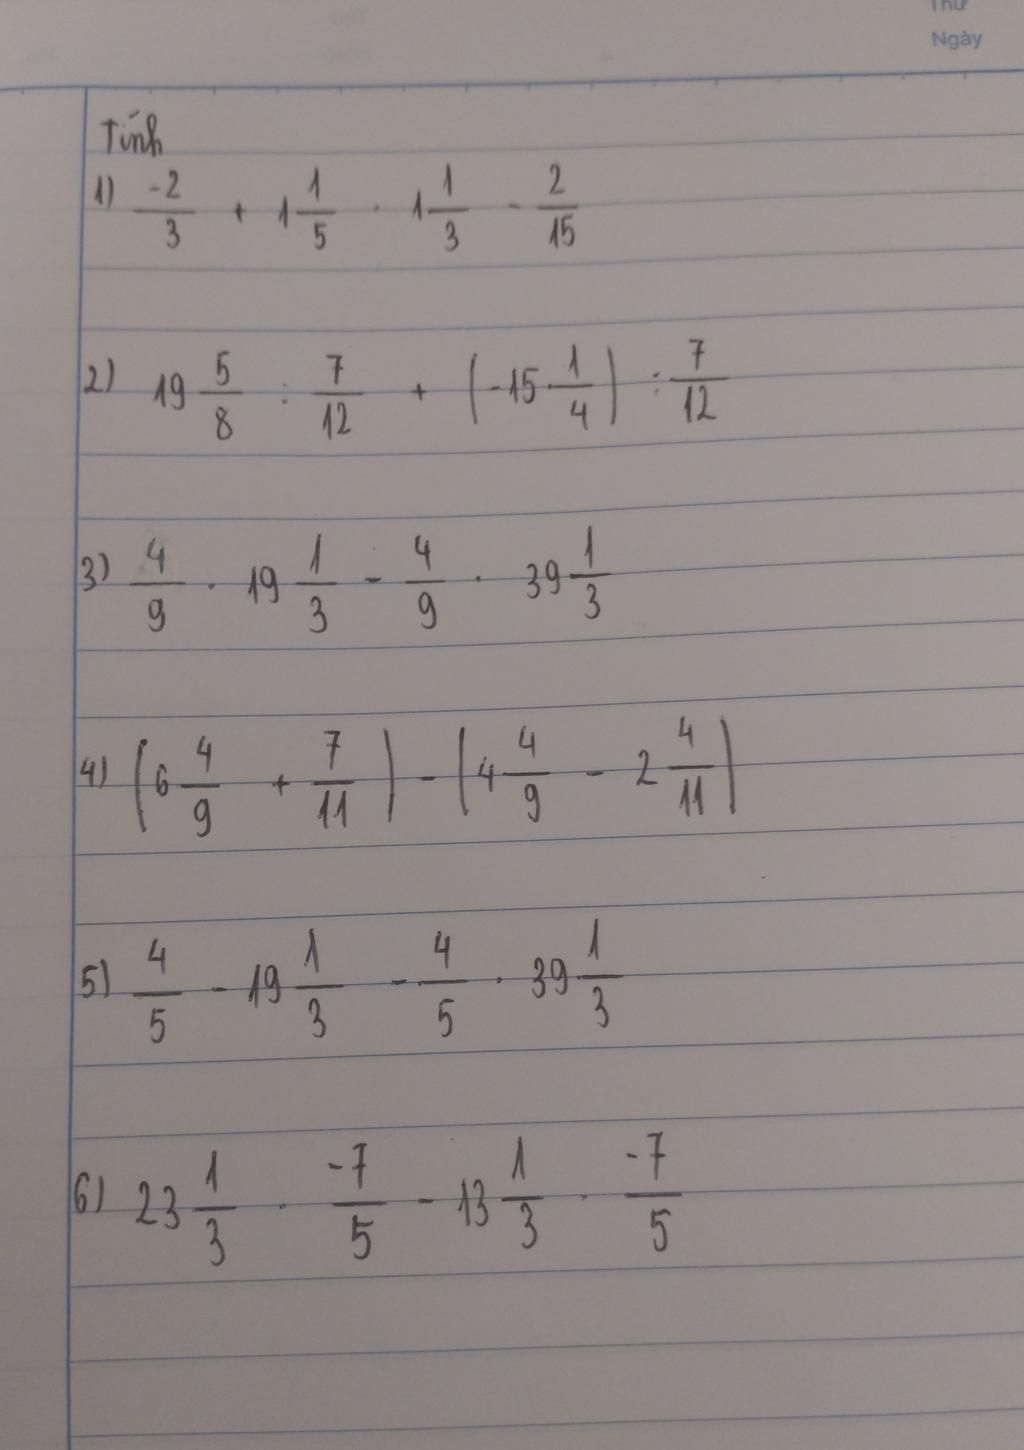 Thứ
Ngày
Tính
1) -2/3 + 1 1/5 . 1 1/3 - 2/15
2) 19 5/8 : 7/12 + (-15 1/4) : 7/12
3) 4/9 . 19 1/3 - 4/9 . 39 1/3
4) (6 4/9 + 7/11) - (4 4/9 - 2 4/11)
5) 4/5 - 19 1/3 - 4/5 . 39 1/3
6) 23 1/3 . -7/5 - 13 1/3 . -7/5